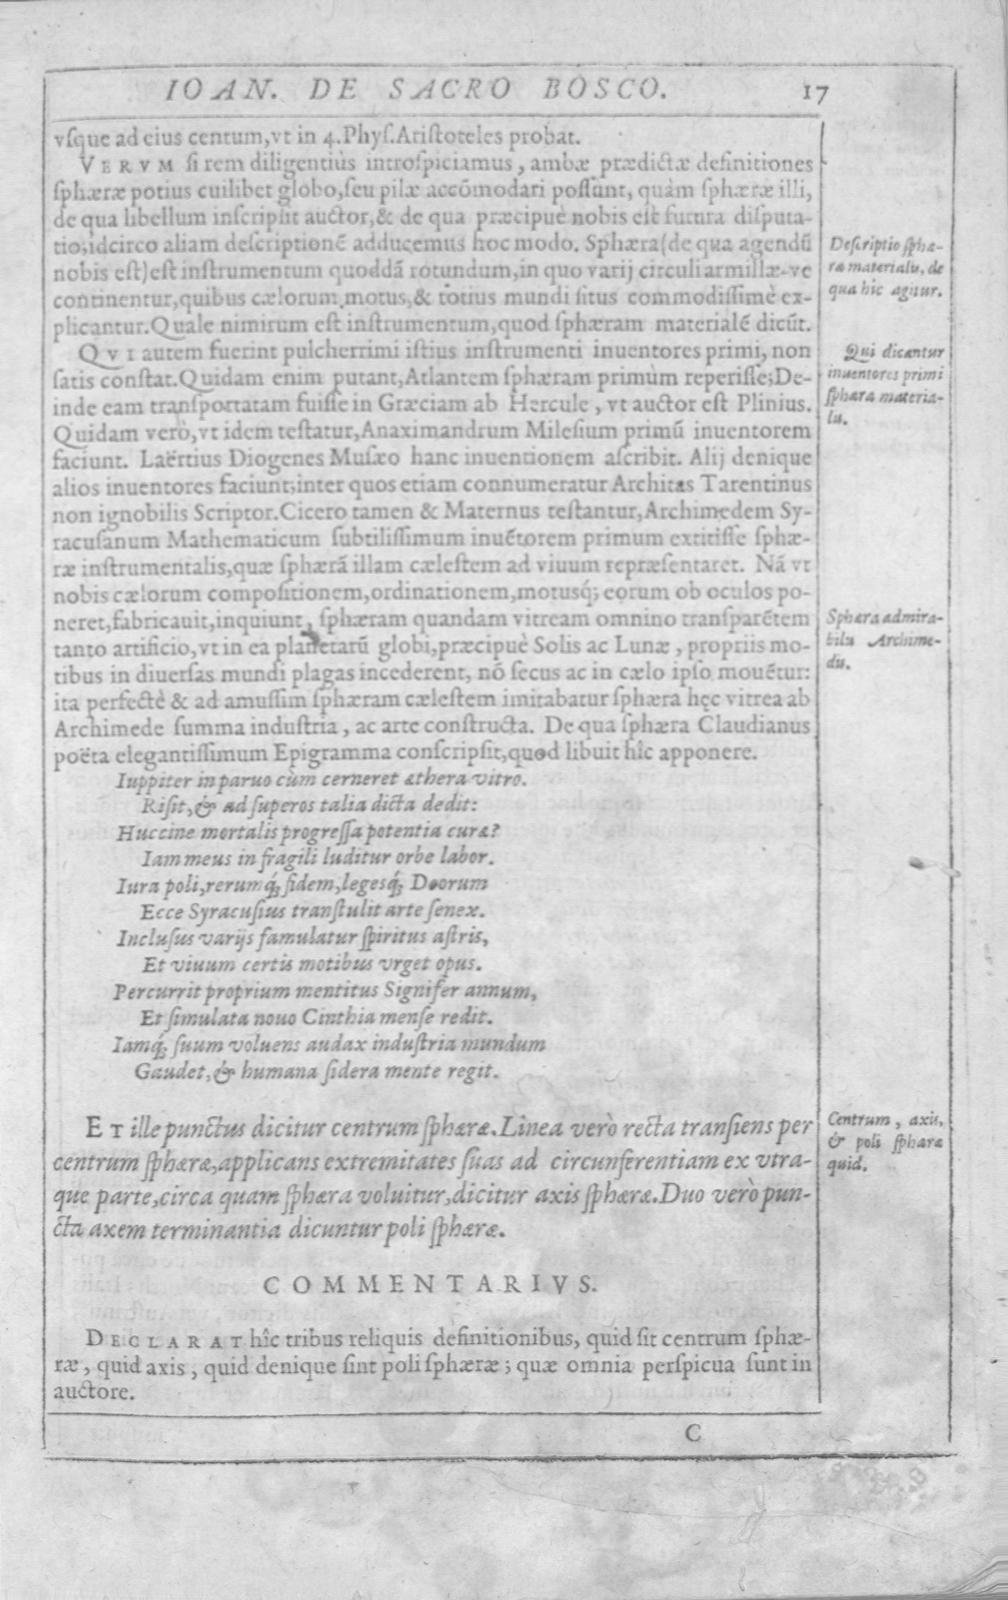 IOAN. DE SACRO BOSCO. 17
vſque ad eius centum,vt in 4.Phyſ.Ariſtoteles probat.
VERVM ſi rem diligentiùs introſpiciamus, ambæ prædictæ definitiones
ſphæræ potius cuilibet globo,ſeu pilæ accõmodari poſſunt, quàm ſphæræ illi,
de qua libellum inſcripſit auctor,& de qua præcipuè nobis eſt futura diſputa-
tio;idcirco aliam deſcriptionẽ adducemus hoc modo. Sphæra(de qua agendũ
nobis eſt)eſt inſtrumentum quoddã rotundum,in quo varij circuli armillæ-ve
continentur,quibus cælorum motus,& totius mundi ſitus commodiſſimè ex-
plicantur.Quale nimirum eſt inſtrumentum,quod ſphæram materialẽ dicũt.
Deſcriptio ſphæ-
ræ materialis, de
qua hic agitur.
QVI autem fuerint pulcherrimi iſtius inſtrumenti inuentores primi, non
ſatis conſtat.Quidam enim putant,Atlantem ſphæram primùm reperiſſe;De-
inde eam tranſportatam fuiſſe in Græciam ab Hercule, vt auctor eſt Plinius.
Quidam verò,vt idem teſtatur,Anaximandrum Mileſium primũ inuentorem
faciunt. Laërtius Diogenes Muſæo hanc inuentionem aſcribit. Alij denique
alios inuentores faciunt;inter quos etiam connumeratur Architas Tarentinus
non ignobilis Scriptor.Cicero tamen & Maternus teſtantur,Archimedem Sy-
racuſanum Mathematicum ſubtiliſſimum inuẽtorem primum extitiſſe ſphæ-
ræ inſtrumentalis,quæ ſphærã illam cæleſtem ad viuum repræſentaret. Nã vt
nobis cælorum compoſitionem,ordinationem,motusq́; eorum ob oculos po-
neret,fabricauit,inquiunt, ſphæram quandam vitream omnino tranſparẽtem
tanto artificio,vt in ea planetarũ globi,præcipuè Solis ac Lunæ, propriis mo-
tibus in diuerſas mundi plagas incederent, nõ ſecus ac in cælo ipſo mouẽtur:
ita perfectè & ad amuſſim ſphæram cæleſtem imitabatur ſphæra hęc vitrea ab
Archimede ſumma induſtria, ac arte conſtructa. De qua ſphæra Claudianus
poëta elegantiſſimum Epigramma conſcripſit,quod libuit hîc apponere.
Qui dicantur
inuentores primi
ſphæræ materia-
lis.
Sphæra admira-
bilis Archime-
dis.
Iuppiter in paruo cùm cerneret æthera vitro.
Riſit,& ad ſuperos talia dicta dedit:
Huccine mortalis progreſſa potentia curæ?
Iam meus in fragili luditur orbe labor.
Iura poli,rerumq́; fidem,legesq́; Deorum
Ecce Syracuſius tranſtulit arte ſenex.
Incluſus varijs famulatur ſpiritus aſtris,
Et viuum certis motibus vrget opus.
Percurrit proprium mentitus Signifer annum,
Et ſimulata nouo Cinthia menſe redit.
Iamq́; ſuum voluens audax induſtria mundum
Gaudet,& humana ſidera mente regit.
ET ille punctus dicitur centrum ſphæræ.Linea verò recta tranſiens per
centrum ſphæræ,applicans extremitates ſuas ad circunferentiam ex vtra-
que parte,circa quam ſphæra voluitur,dicitur axis ſphæræ.Duo verò pun-
cta axem terminantia dicuntur poli ſphæræ.
Centrum, axis,
& poli ſphæræ
quid.
COMMENTARIVS.
DECLARAT hîc tribus reliquis definitionibus, quid ſit centrum ſphæ-
ræ, quid axis, quid denique ſint poli ſphæræ; quæ omnia perſpicua ſunt in
auctore.
C